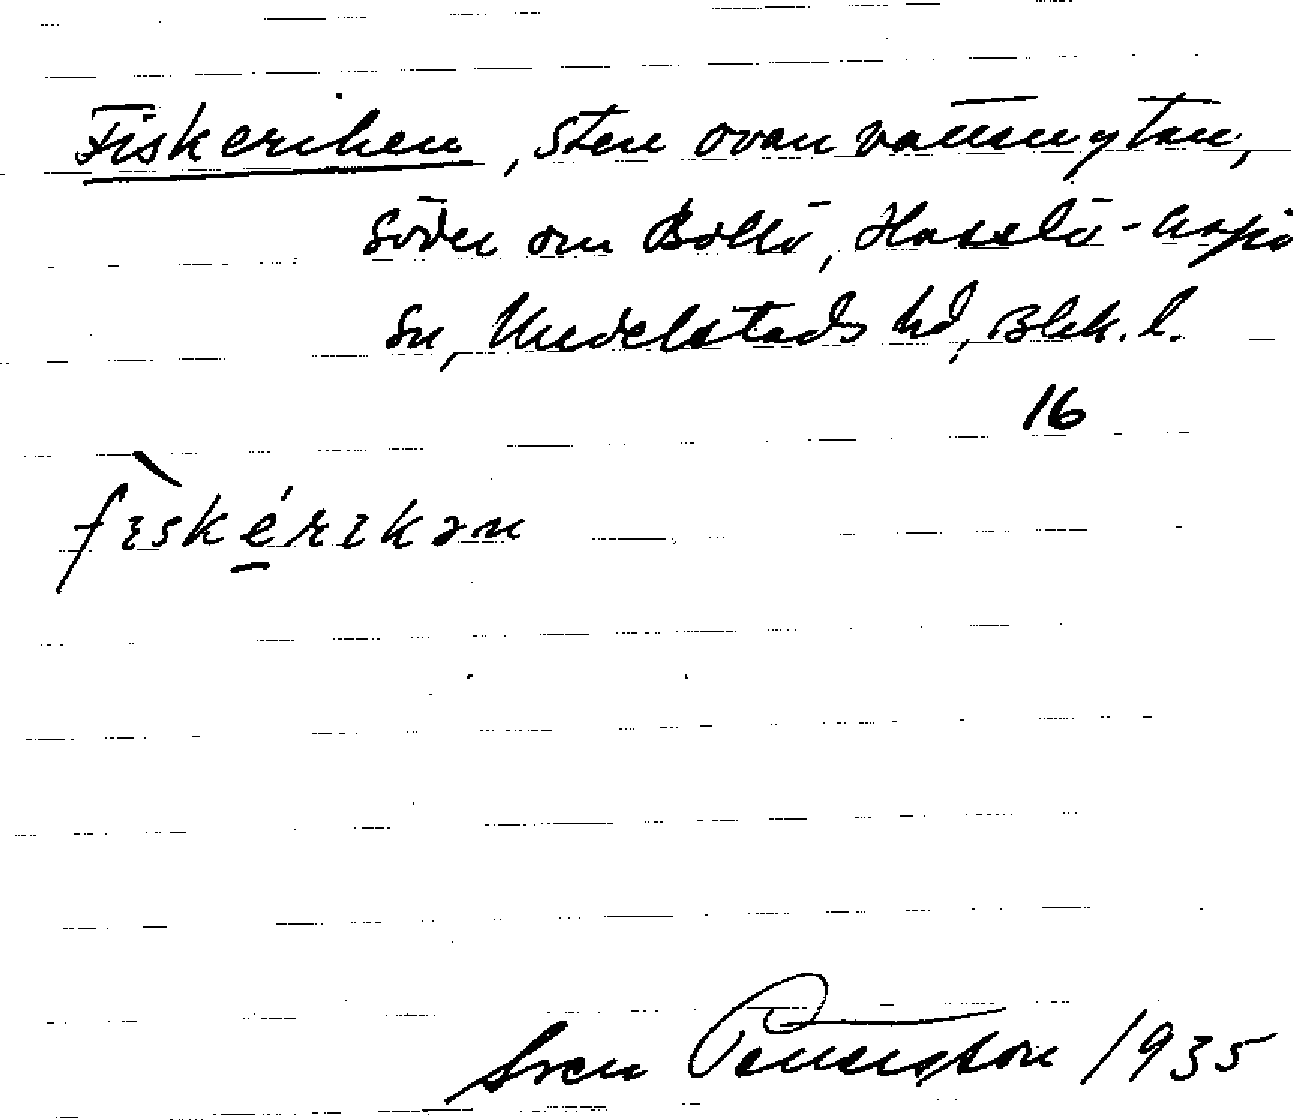 Fiskeriken, sten ovan vattenytan,
söder om Bollö, Hasslö-Aspö
sn, Medelstads hd, Blek. l.
16
fìskérikən
Sven Benson 1935